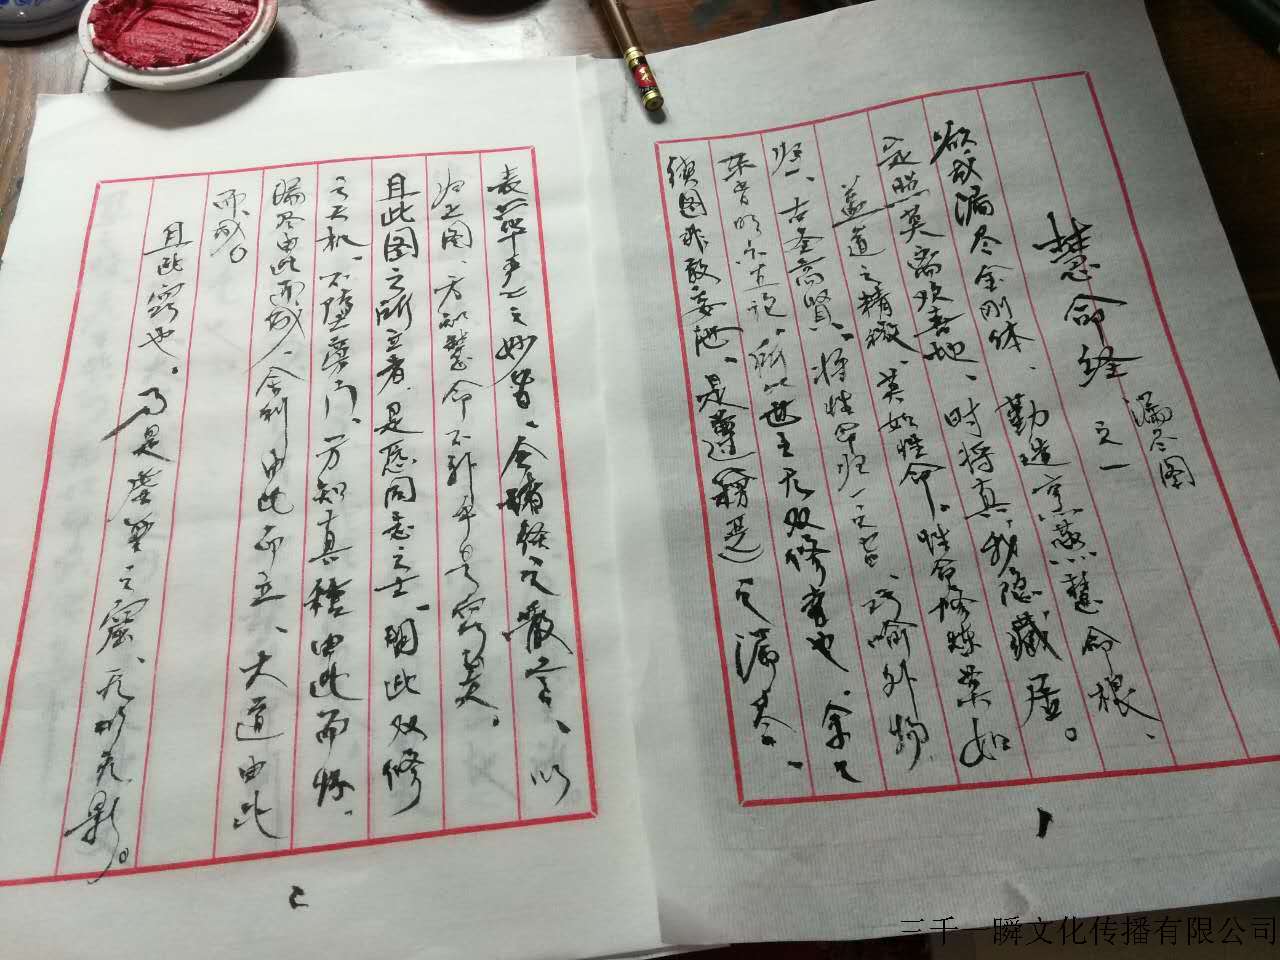 慧命经之一
漏尽图
欲成漏尽金刚体、勤造烹蒸慧命根、
定照莫离欢喜地、时将真我隐藏居。
盖道之精微、莫如性命。性命修炼莫如
归一、古圣高贤、将性命归一之旨、巧喻外物
明示直论、所以世上无双修者也、余之
续图非敢妄泄、是遵(楞严)之漏尽、
1
表華严之妙旨、会诸经之散言、以
归正图、方知慧命不外乎是窍矣。
且此图之所立者、是愿同志之士、明此双修
之天机、不堕旁门、方知真種由此而怀、
漏尽由此而成、舍利由此而立、大道由此
而成。
且此窍也。乃是虚空之窟、无形无影。
2
三千一瞬文化传播有限公司